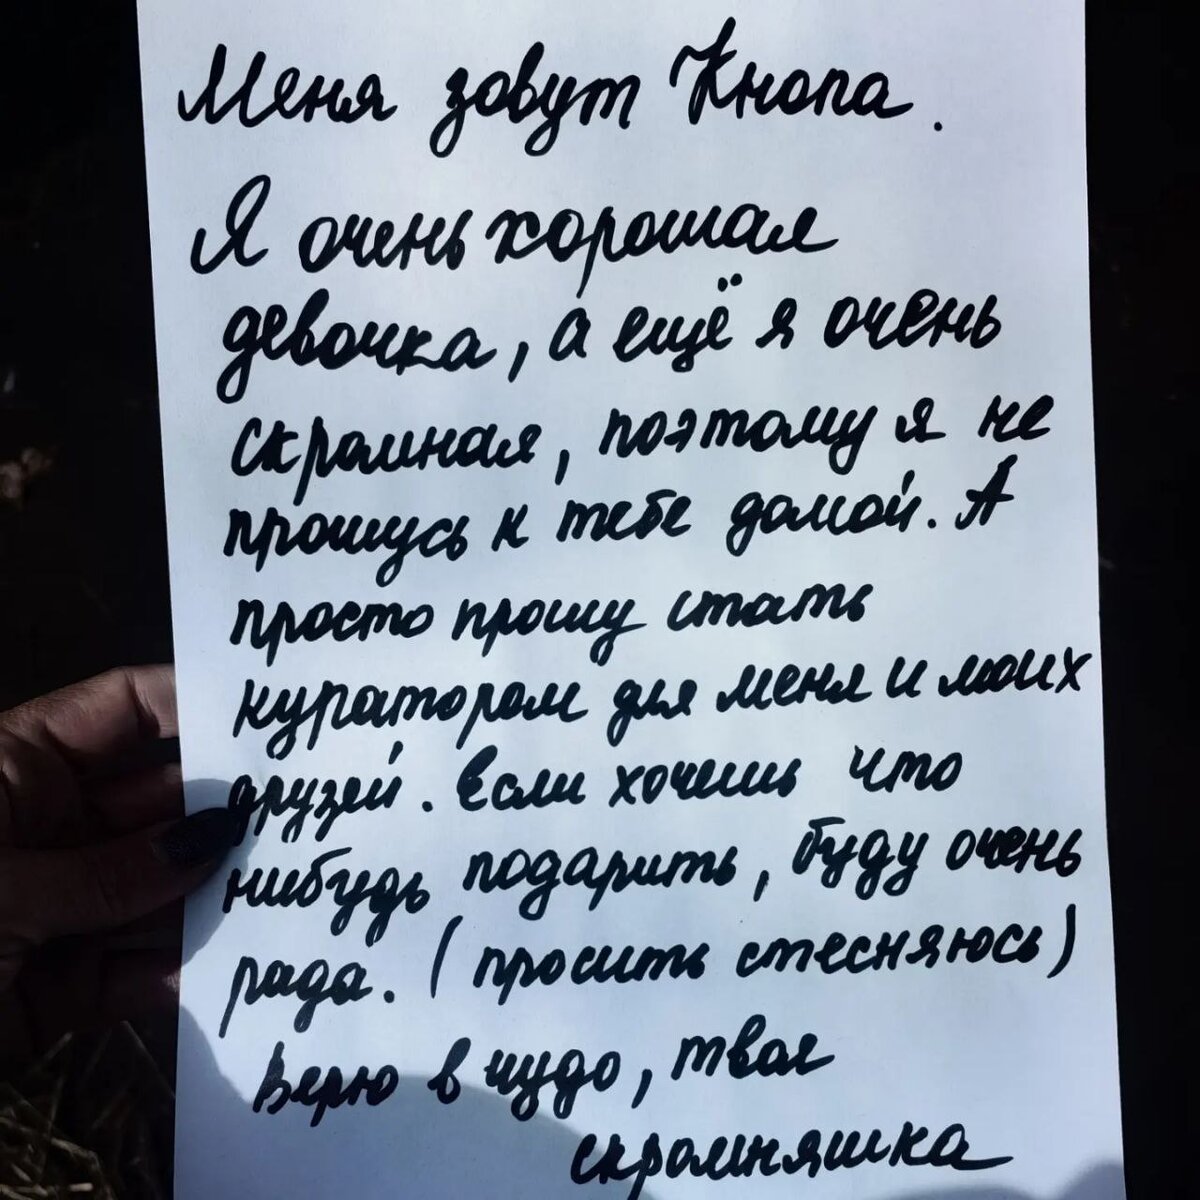 Меня зовут Кнопа.
Я очень хорошая
девочка, а ещё я очень
скромная, поэтому я не
прошусь к тебе домой. А
просто прошу стать
куратором для меня и моих
друзей. Если хочешь что
нибудь подарить, буду очень
рада. (просить стесняюсь)
Верю в чудо, твоя
скромняшка